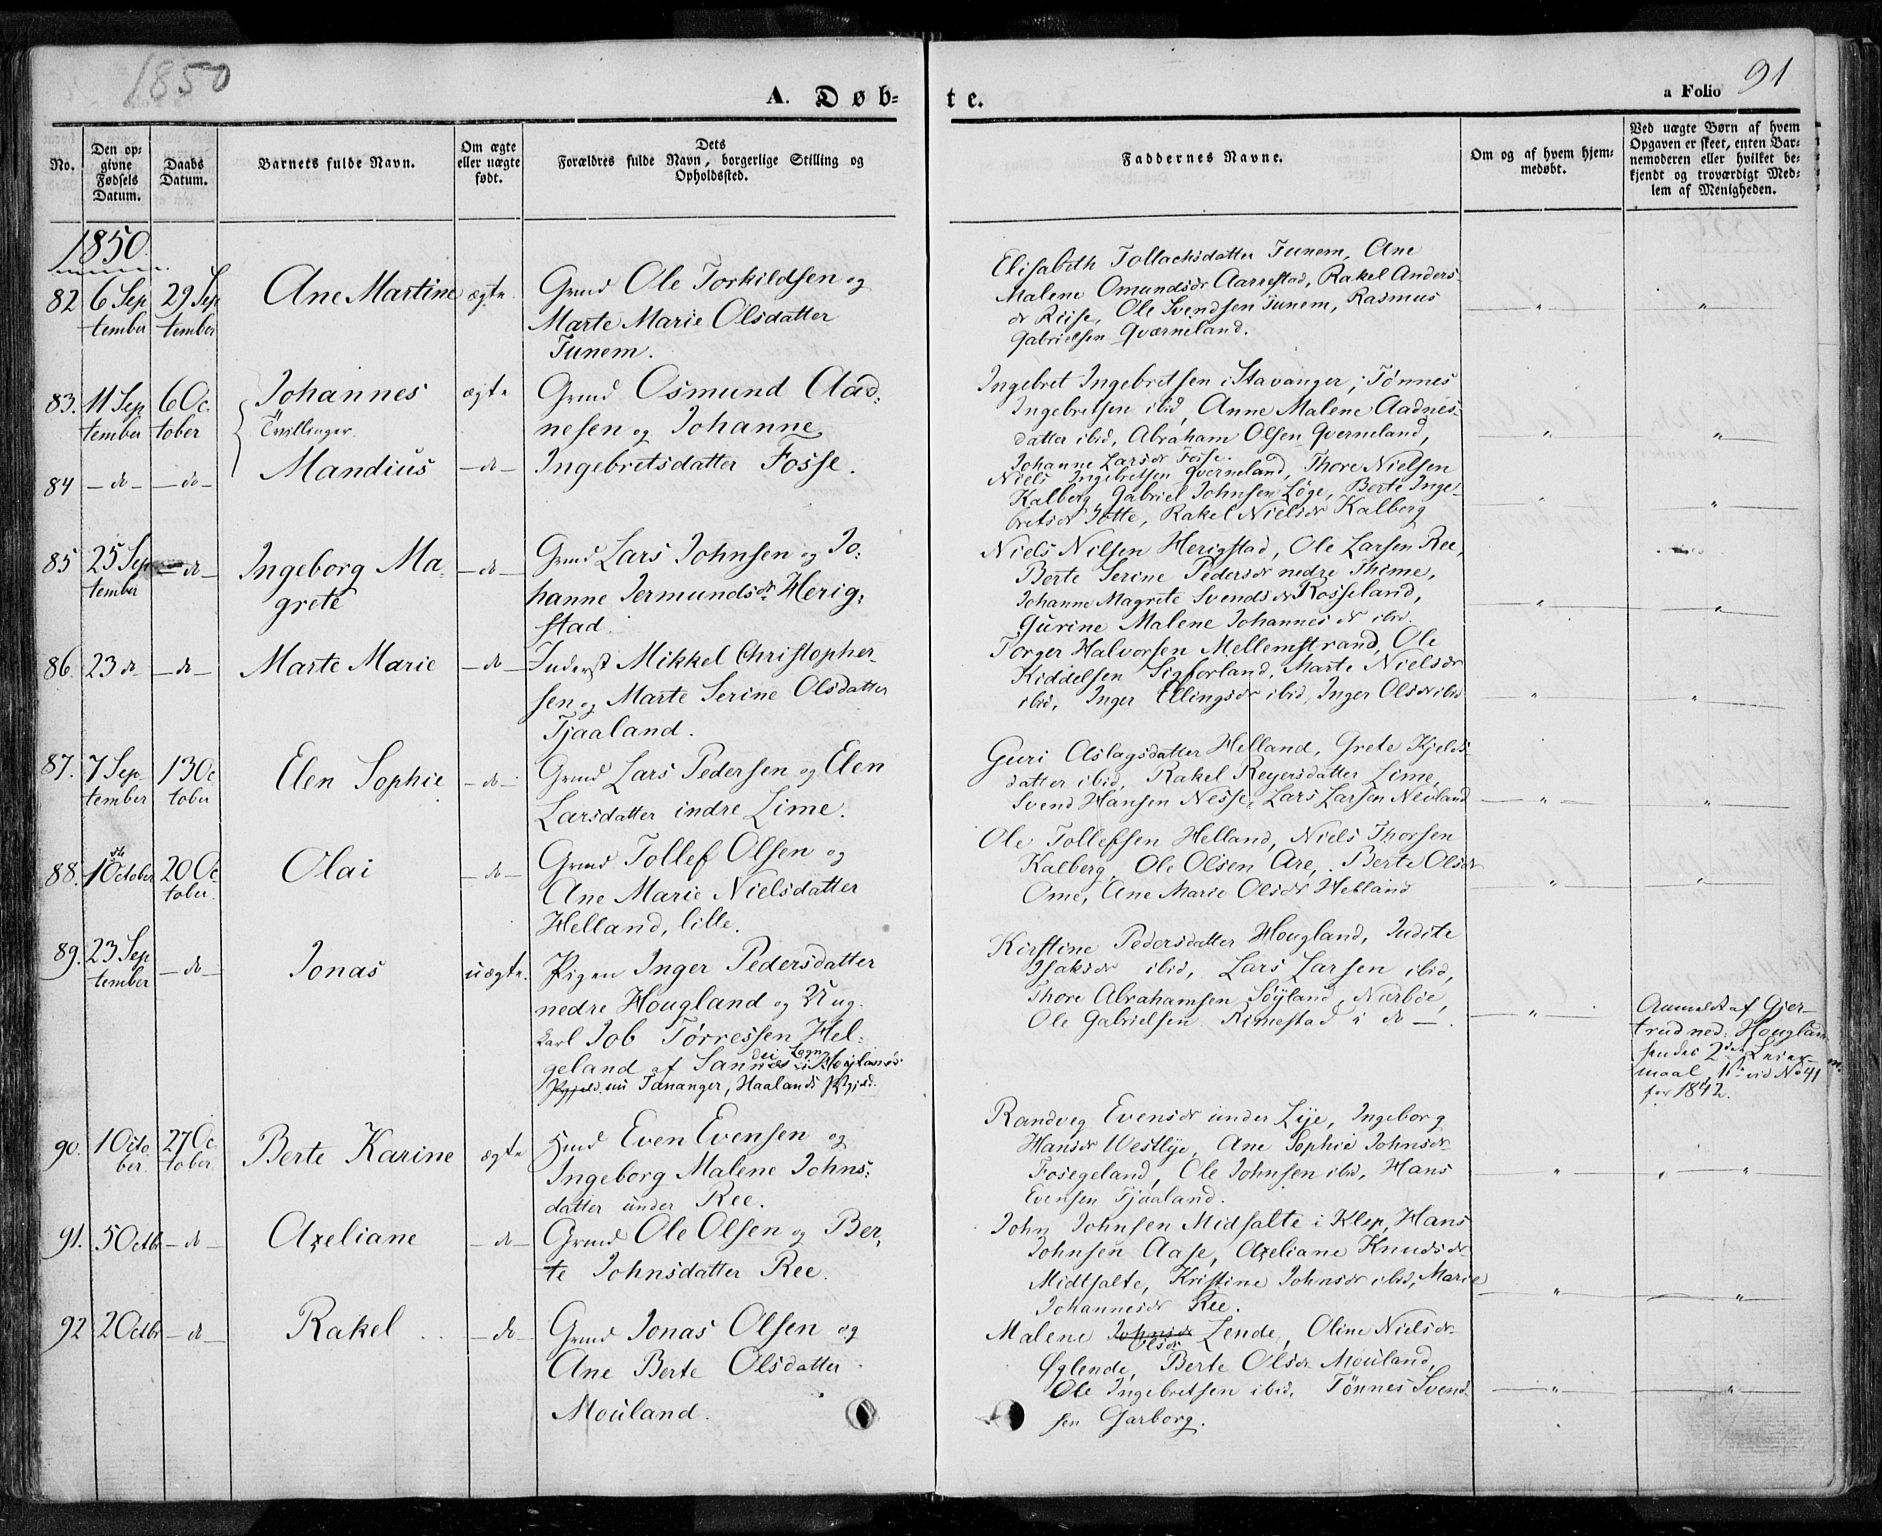 1850
A. Døb-
te.
a Folio 91
No.
Den op-
givne
Fødsels
Datum.
Daabs
Datum.
Barnets fulde Navn.
Om ægte
eller uægte
født.
Dets
Forældres fulde Navn, borgerlige Stilling og
Opholdssted.
Faddernes Navne.
Om og af hvem hjem-
medøbt.
Ved uægte Børn af hvem
Opgaven er skeet, enten Bar-
nemoderen eller hvilket be-
kjendt og troværdigt Med-
lem af Menigheden.
1850.
82 6 Sep 29 Sep
tember tember
Ane Martine ægte.
Grmd Ole Torkildsen og
Marte Marie Olsdatter
Tunem.
Elisabeth Tollachsdatter Tunem, Ane
Malene Omundsdr Aarrestad, Rakel Anders
dr Riise, Ole Svendsen Tunem, Rasmus
Gabrielsen Qværneland.
83. 11 Sep 6 Oc
tember tober
Johannes ægte
Tvillinger.
Grmd Osmund Aad-
nesen og Johanne
Ingebretsdatter Fosse.
Ingebret Ingebretsen i Stavanger, Tønnes
Ingebretsen ibid, Anne Malene Aadnes-
datter ibid, Abraham Olsen Qverneland,
Johanne Larsdr Fosse.
84 -do- -do- Mandius -do-
Niels Ingebretsen Qverneland, Thore Nielsen
Kalberg, Gabriel Johnsen Løge, Berte Inge-
bretsdr Totte, Rakel Nielsdr Kalberg
85 25 Sep -do-
tember
Ingeborg Ma- -do-
grete
Grmd Lars Johnsen og Jo-
hanne Jermundsdr Herig-
stad.
Niels Nilsen Herigstad, Ole Larsen Ree,
Berte Serine Pedersdr nedre Thime,
Johanne Magrete Svendsdr Rosseland,
Gurine Malene Johannesdr ibid.
86. 23 do -do- Marte Marie -do-
Inderst Mikkel Christopher-
sen og Marte Serine Olsdatter
Tjaaland.
Torger Halvorsen Mellemstrand, Ole
Kiddelsen Sigforland, Marte Nielsdr
ibid, Inger Ellingsdr ibid, Inger Olsdr ibid
87. 7 Sep 13 Oc
tember tober
Elen Sophie -do-
Grmd Lars Pedersen og Elen
Larsdatter indre Lime.
Guri Aslagsdatter Helland, Grete Kjelds
datter ibid, Rakel Reyersdatter Lime,
Svend Hansen Nesse, Lars Larsen Neuland
88. 1 October 20 Oc
tober.
Olai -do-
Grmd Tollef Olsen og
Ane Marie Nielsdatter
Helland, lille.
Ole Tollefsen Helland, Niels Thorsen
Kalberg, Ole Olsen Are, Berte Olsdr
Ome, Ane Marie Olsdr Helland
89. 23 Sep -do-
tember
Jonas uægte.
Pigen Inger Pedersdatter
nedre Hougland og Ung-
karl Job Tørressen Hel-
geland af Sannes i Høiland
Pgjeld nu Tananger, Haalands Pgjeld.
Kirstine Pedersdatter Hougland, Judite
Isaksdr ibid, Lars Larsen ibid,
Thore Abrahamsen Søyland, Nærbøe,
Ole Gabrielsen Rimestad i do
Anmeldt af Gjer-
trud ned. Houglan
hendes 2det Leier-
maal, 1ste vid No 41
for 1842.
90. 1 Octo 27 Oc
ber. tober
Berte Karine ægte
Hmd Even Evensen og
Ingeborg Malene Johns-
datter under Ree.
Randveg Evensdr under Lye, Ingeborg
Hansdr Westlye, Ane Sophie Johnsdr
Fosegeland, Ole Johnsen ibid, Hans
Evensen Tjaaland.
91. 5 Octbr -do- Axeliane -do-
Grmd Ole Olsen og Ber-
te Johnsdatter Ree.
John Johnsen Midfalte i Klep, Hans
Johnsen Aase, Axeliane Knudsdr
Midtfalte, Kristine Johnsdr ibid, Marie
Johannesdr Ree.
92 2 Octbr -do- Rakel -do-
Grmd Jonas Olsen og
Ane Berte Olsdatter
Mouland.
Malene Johnsdr Olsdr Lende, Oline Nielsdr
Øglende, Berte Olsdr Mouland,
Ole Ingebretsen ibid, Tønnes Svend
sen Garborg.